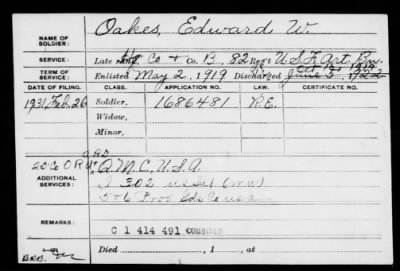 NAME OF SOLDIER: Oakes, Edward W.
SERVICE: Late Hq Co + Co. B, 82 Reg't U.S. F. Art.
TERM OF SERVICE: Enlisted May 2, 1919 Discharged June 3, 1922
DATE OF FILING. CLASS. APPLICATION NO. LAW. CERTIFICATE NO.
1931, Feb. 26 Soldier, 1686481 R.E.
Widow,
Minor,
ADDITIONAL SERVICES: Q.M.C., U.S.A.
302
REMARKS: C 1 414 491 COMBINED
Died , 1 , at